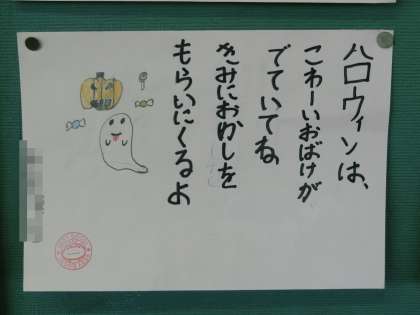 ハロウィンは、
こわーいおばけが
でていてね
きみにおかしを
もらいにくるよ